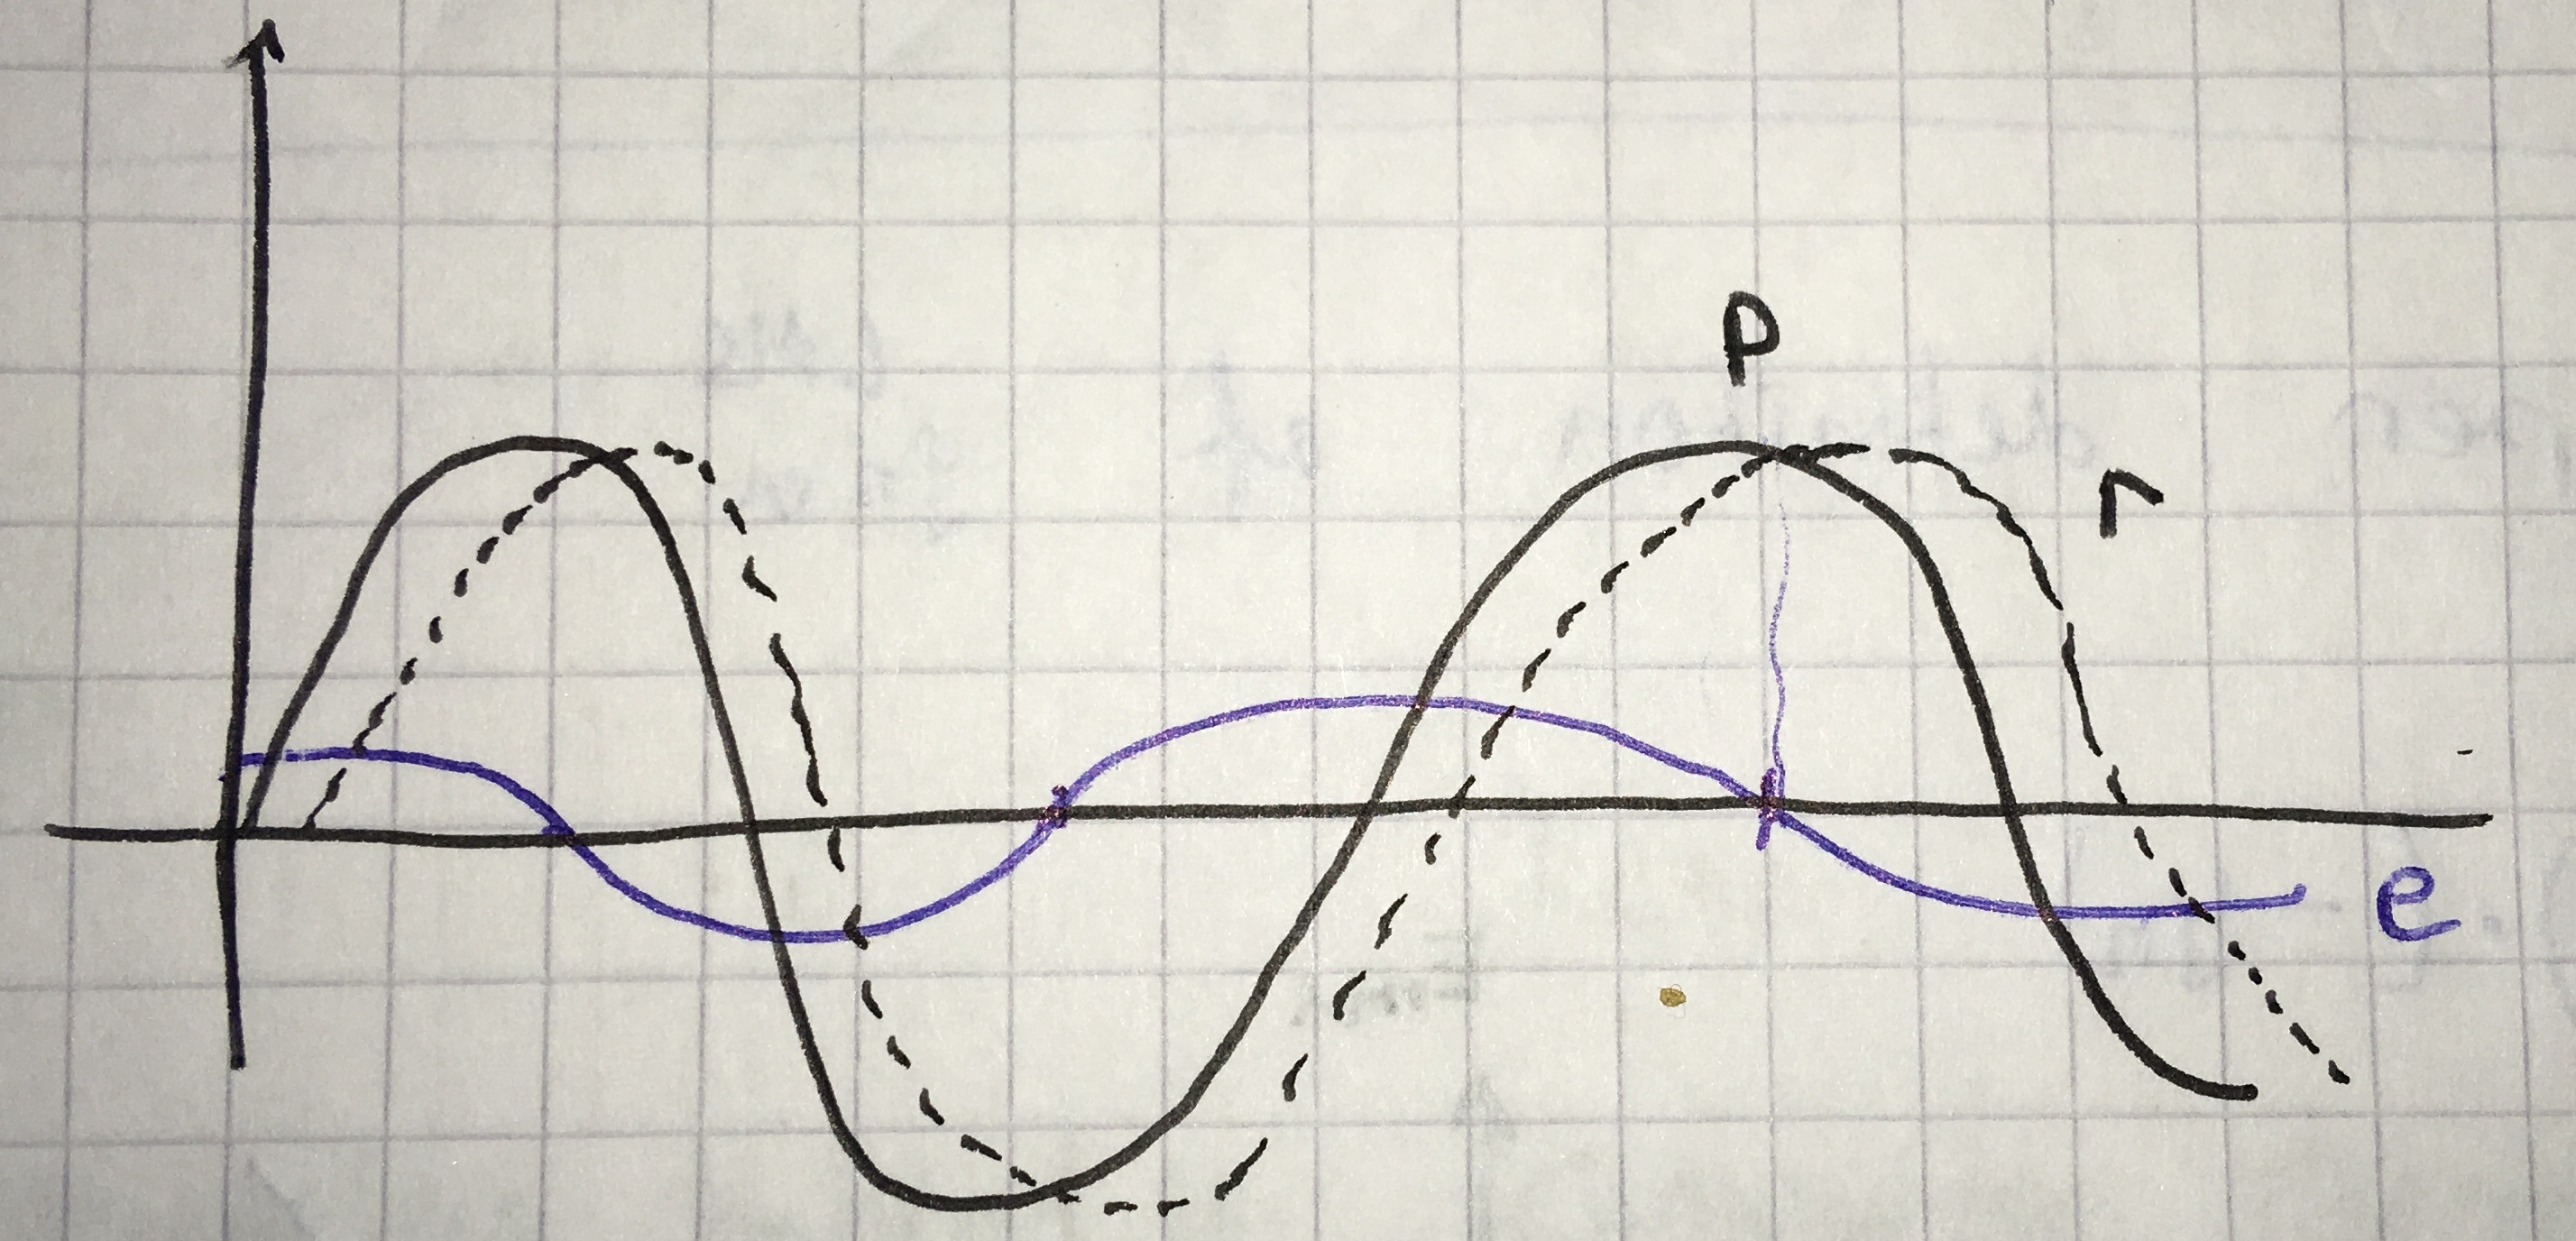 p
r
e